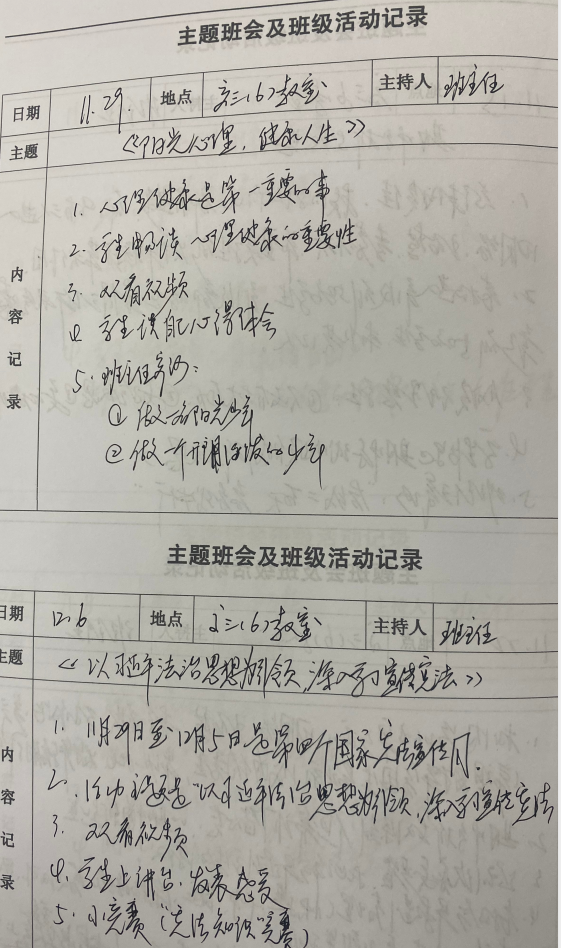 主题班会及班级活动记录
日期 11.29. 地点 高三(6)教室 主持人 班主任
主题 《阳光心理，健康人生》
内容记录
1. 心理健康是第一重要的事
2. 学生畅谈 心理健康的重要性
3. 观看视频
4. 学生谈自己心得体会
5. 班主任寄语：
① 做一名阳光少年
② 做一个开朗活泼的少年
主题班会及班级活动记录
日期 12.6 地点 高三(6)教室 主持人 班主任
主题 《以习近平法治思想为引领，深入学习宣传宪法》
内容记录
1. 11月29日至12月5日是第四个国家宪法宣传周.
2. 活动主题是"以习近平法治思想为引领，深入学习宣传宪法
3. 观看视频
4. 学生上讲台，发表感受
5. 小竞赛（宪法知识竞赛）